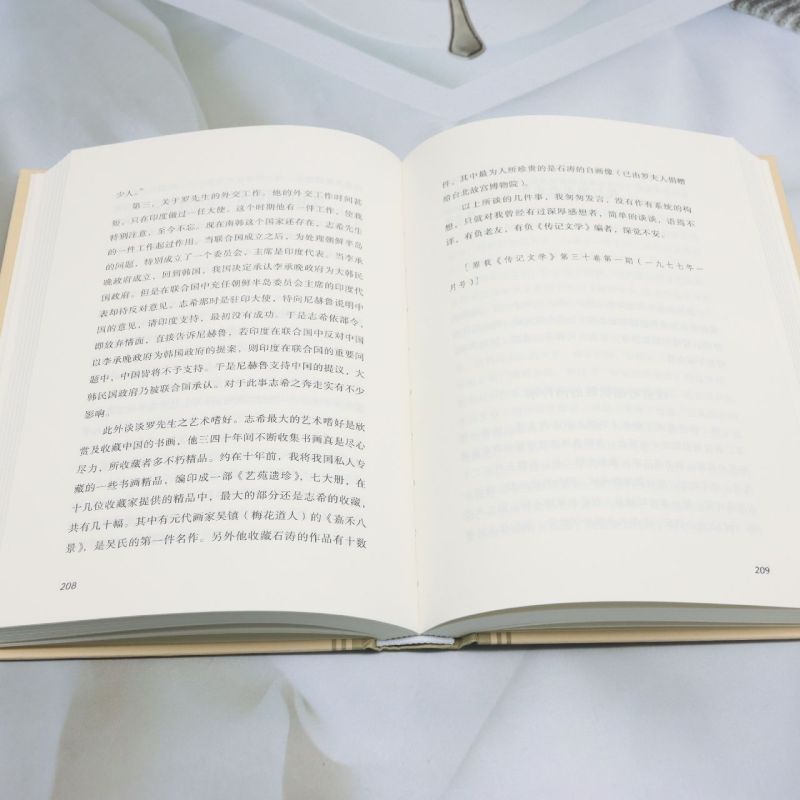 少人。”
第三，关于罗先生的外交工作。他的外交工作时间甚
短，只在印度做过一任大使。这个时期他有一件工作，使我
特别注意，至今不忘。现在南韩这个国家还存在，志希先生
的一件工作起过作用。当联合国成立之后，为处理朝鲜半岛
的问题，特别成立了一个委员会，主席是印度代表。当李承
晚政府成立，回到韩国，我国决定承认李承晚政府为大韩民
国政府。但是在联合国中充任朝鲜半岛委员会主席的印度代
表却持反对意见。志希那时是驻印大使，特向尼赫鲁说明中
国的意见，请印度支持，最初没有成功。于是志希依部令，
即放弃情面，直接告诉尼赫鲁，若印度在联合国中反对中国
以李承晚政府为韩国政府的提案，则印度在联合国的重要问
题中，中国皆将不予支持。于是尼赫鲁支持中国的提议，大
韩民国政府乃被联合国承认。对于此事志希之奔走实有不少
影响。
此外谈谈罗先生之艺术嗜好。志希最大的艺术嗜好是欣
赏及收藏中国的书画，他三四十年间不断收集书画真是尽心
尽力，所收藏者多不朽精品。约在十年前，我将我国私人专
藏的一些书画精品，编印成一部《艺苑遗珍》，七大册，在
十几位收藏家提供的精品中，最大的部分还是志希的收藏，
共有几十幅。其中有元代画家吴镇（梅花道人）的《嘉禾八
景》，是吴氏的第一件名作。另外他收藏石涛的作品有十数
208
件。其中最为人所珍贵的是石涛的自画像（已由罗夫人捐赠
给台北故宫博物院）。
以上所谈的几件事，我匆匆发言，没有作有系统的构
想，只就对我曾经有过深厚感想者，简单的谈谈，语焉不
详，有负老友，有负《传记文学》编者，深觉不安。
［原载《传记文学》第三十卷第一期（一九七七年一
月号）］
209